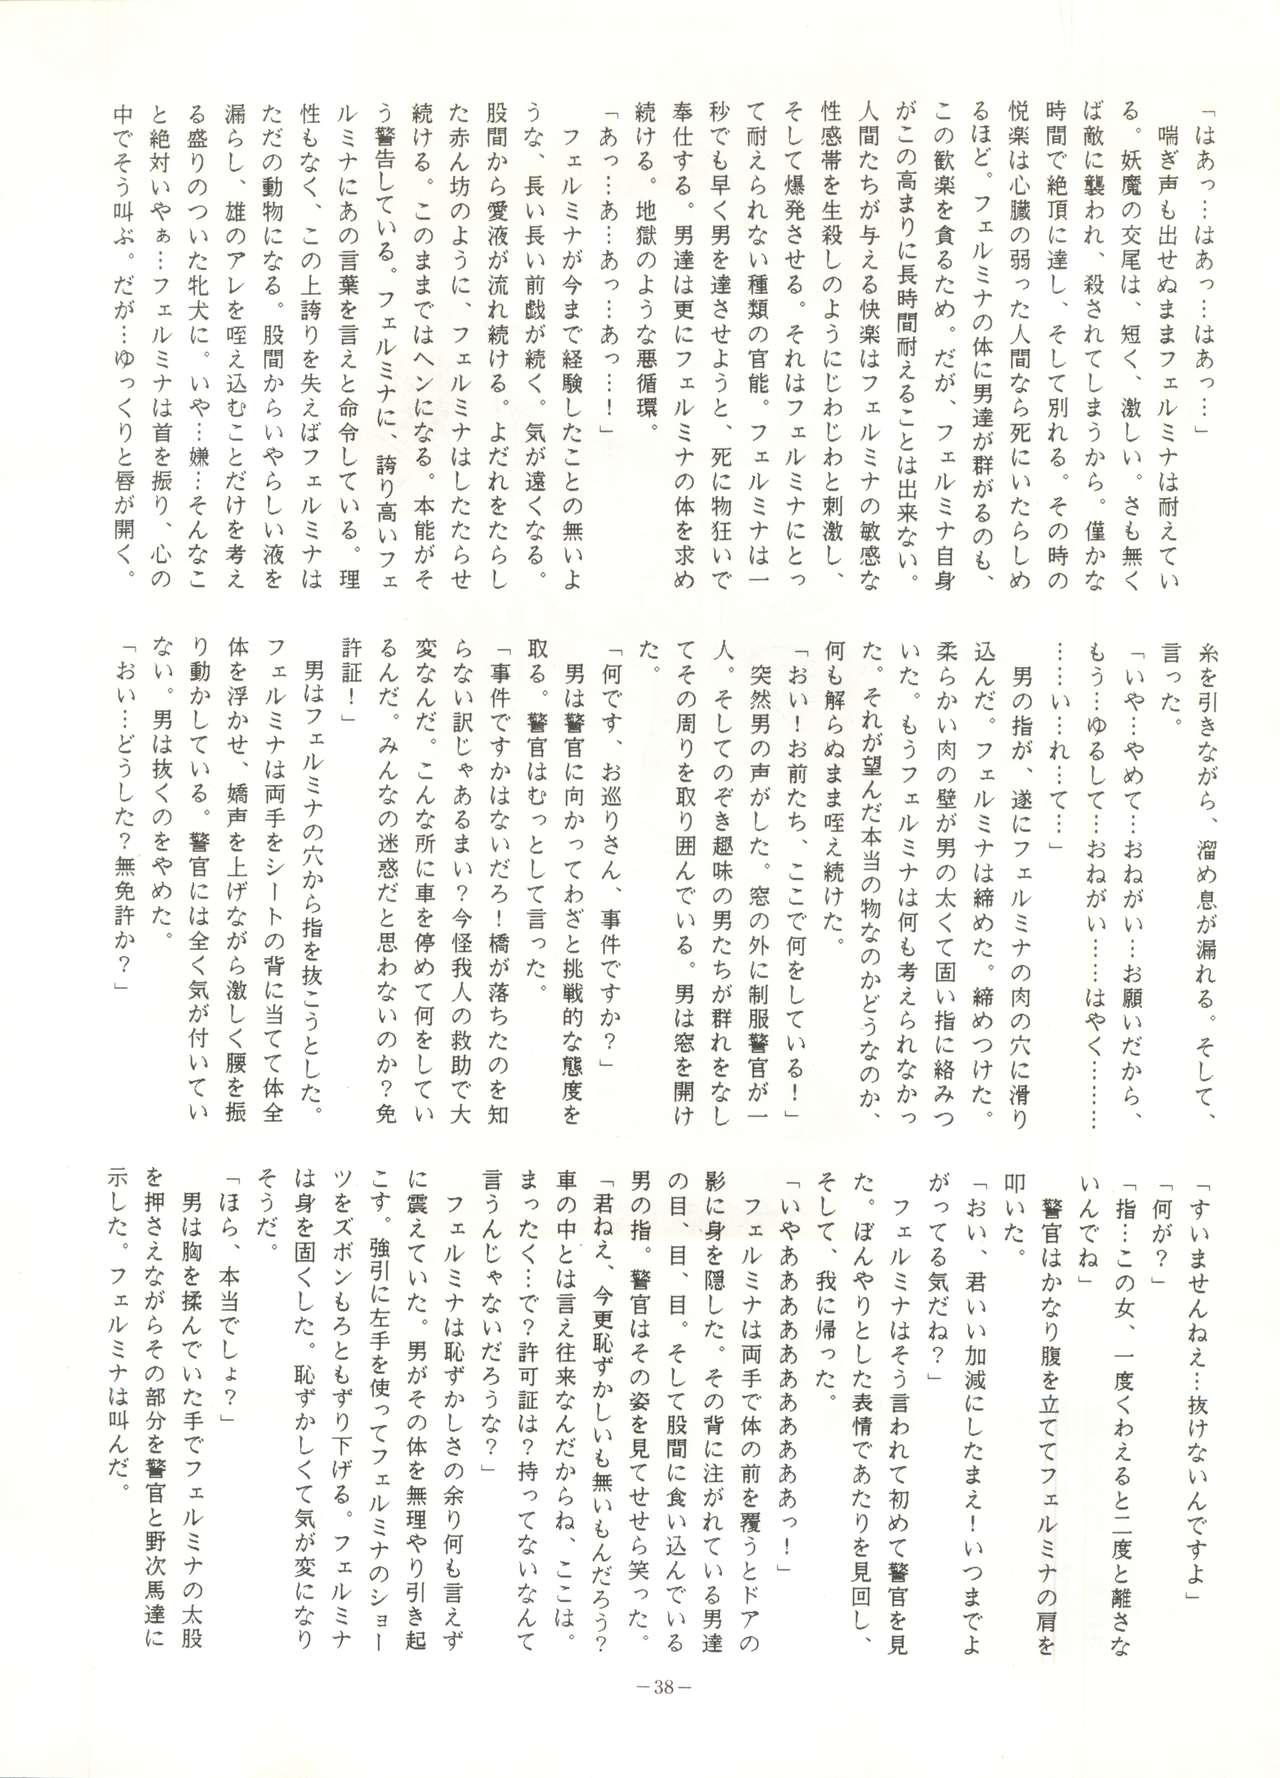 「はあっ…はあっ…はあっ…」
喘ぎ声も出せぬままフェルミナは耐えてい
る。妖魔の交尾は、短く、激しい。さも無く
ば敵に襲われ、殺されてしまうから。僅かな
時間で絶頂に達し、そして別れる。その時の
悦楽は心臓の弱った人間なら死にいたらしめ
るほど。フェルミナの体に男達が群がるのも、
この歓楽を貪るため。だが、フェルミナ自身
がこの高まりに長時間耐えることは出来ない。
人間たちが与える快楽はフェルミナの敏感な
性感帯を生殺しのようにじわじわと刺激し、
そして爆発させる。それはフェルミナにとっ
て耐えられない種類の官能。フェルミナは一
秒でも早く男を達させようと、死に物狂いで
奉仕する。男達は更にフェルミナの体を求め
続ける。地獄のような悪循環。
「あっ…あ…あっ…あっ…！」
フェルミナが今まで経験したことの無いよ
うな、長い長い前戯が続く。気が遠くなる。
股間から愛液が流れ続ける。よだれをたらし
た赤ん坊のように、フェルミナはしたたらせ
続ける。このままではヘンになる。本能がそ
う警告している。フェルミナに、誇り高いフェ
ルミナにあの言葉を言えと命令している。理
性もなく、この上誇りを失えばフェルミナは
ただの動物になる。股間からいやらしい液を
漏らし、雄のアレを咥え込むことだけを考え
る盛りのついた牝犬に。いや…嫌…そんなこ
と絶対いやぁ…フェルミナは首を振り、心の
中でそう叫ぶ。だが…ゆっくりと唇が開く。
糸を引きながら、溜め息が漏れる。そして、
言った。
「いや…やめて…おねがい…お願いだから、
もう…ゆるして…おねがい……はやく………
……い…れ…て…」
男の指が、遂にフェルミナの肉の穴に滑り
込んだ。フェルミナは締めた。締めつけた。
柔らかい肉の壁が男の太くて固い指に絡みつ
いた。もうフェルミナは何も考えられなかっ
た。それが望んだ本当の物なのかどうなのか、
何も解らぬまま咥え続けた。
「おい！お前たち、ここで何をしている！」
突然男の声がした。窓の外に制服警官が一
人。そしてのぞき趣味の男たちが群れをなし
てその周りを取り囲んでいる。男は窓を開け
た。
「何です、お巡りさん、事件ですか？」
男は警官に向かってわざと挑戦的な態度を
取る。警官はむっとして言った。
「事件ですかはないだろ！橋が落ちたのを知
らない訳じゃあるまい？今怪我人の救助で大
変なんだ。こんな所に車を停めて何をしてい
るんだ。みんなの迷惑だと思わないのか？免
許証！」
男はフェルミナの穴から指を抜こうとした。
フェルミナは両手をシートの背に当てて体全
体を浮かせ、嬌声を上げながら激しく腰を振
り動かしている。警官には全く気が付いてい
ない。男は抜くのをやめた。
「おい…どうした？無免許か？」
「すいませんねえ…抜けないんですよ」
「何が？」
「指…この女、一度くわえると二度と離さな
いんでね」
警官はかなり腹を立ててフェルミナの肩を
叩いた。
「おい、君いい加減にしたまえ！いつまでよ
がってる気だね？」
フェルミナはそう言われて初めて警官を見
た。ぼんやりとした表情であたりを見回し、
そして、我に帰った。
「いやあああああああああああっ！」
フェルミナは両手で体の前を覆うとドアの
影に身を隠した。その背に注がれている男達
の目、目、目。そして股間に食い込んでいる
男の指。警官はその姿を見てせせら笑った。
「君ねえ、今更恥ずかしいも無いもんだろう？
車の中とは言え往来なんだからね、ここは。
まったく…で？許可証は？持ってないなんて
言うんじゃないだろうな？」
フェルミナは恥ずかしさの余り何も言えず
に震えていた。男がその体を無理やり引き起
こす。強引に左手を使ってフェルミナのショー
ツをズボンもろともずり下げる。フェルミナ
は身を固くした。恥ずかしくて気が変になり
そうだ。
「ほら、本当でしょ？」
男は胸を揉んでいた手でフェルミナの太股
を押さえながらその部分を警官と野次馬達に
示した。フェルミナは叫んだ。
－38－